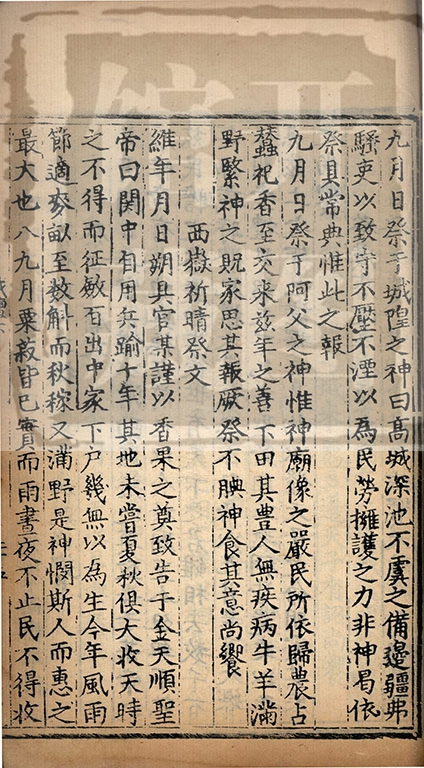 九月日祭于城隍之神曰高城深池不虞之備邊疆弗
騷吏以致守不壓不湮以為民勞擁護之力非神曷依
祭具常典惟此之報
九月日祭于阿父之神惟神廟像之嚴民所依歸農占
蠶祀香至交来兹年之善下田其豊人無疾病牛羊滿
野緊神之貺家思其報厥祭不腆神食其意尚饗
西嶽祈晴祭文
維年月日朔具官某謹以香果之奠致告于金天順聖
帝曰関中自用兵踰十年其地未嘗夏秋俱大收天時
之不得而征斂百出中家下戶幾無以為生今年風雨
節適麥畝至數斛而秋稼又滿野是神憫斯人而惠之
最大也八九月粟菽皆已實而雨晝夜不止民不得收